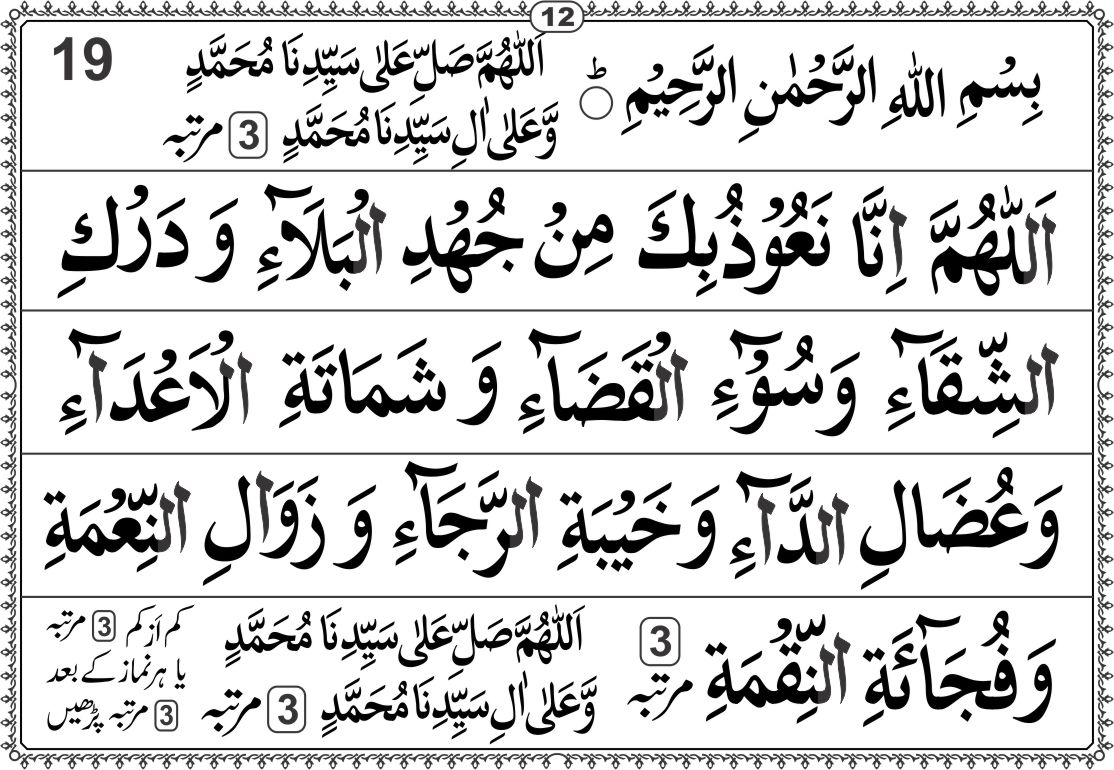 12
19
بِسْمِ اللهِ الرَّحْمٰنِ الرَّحِيْمِ ○ ط
اَللّٰهُمَّ صَلِّ عَلٰى سَيِّدِنَا مُحَمَّدٍ
وَّعَلٰى اٰلِ سَيِّدِنَا مُحَمَّدٍ 3 مرتبہ
اَللّٰهُمَّ اِنَّا نَعُوْذُبِكَ مِنْ جُهْدِ الْبَلَآءِ وَ دَرْكِ
الشِّقَآءِ وَسُوْٓءِ الْقَضَآءِ وَ شَمَاتَةِ الْاَعْدَآءِ
وَعُضَالِ الدَّآءِ وَخَيْبَةِ الرَّجَآءِ وَ زَوَالِ النِّعْمَةِ
وَفُجَآئَةِ النِّقْمَةِ 3 مرتبہ
اَللّٰهُمَّ صَلِّ عَلٰى سَيِّدِنَا مُحَمَّدٍ
وَّعَلٰى اٰلِ سَيِّدِنَا مُحَمَّدٍ 3 مرتبہ
کم اَز کم 3 مرتبہ
یا ہر نماز کے بعد
3 مرتبہ پڑھیں